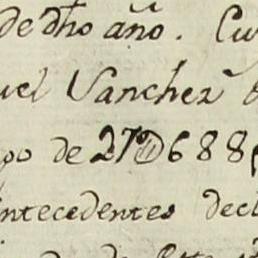 de dho año. Cu
uel Sanchez
po de 27@688
ntecedentes decl